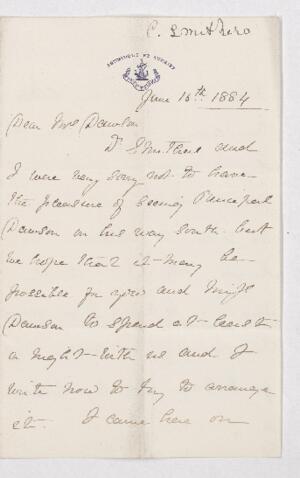 C. Smithers
June 16th 1884
Dear Mrs Dawson
Dr Smithers and
I were very sorry not to have
the pleasure of seeing Principal
Dawson on his way south but
we hope that it may be
possible for you and Miss
Dawson to spend at least
a night with us and I
write now to try to arrange
it. I came here on